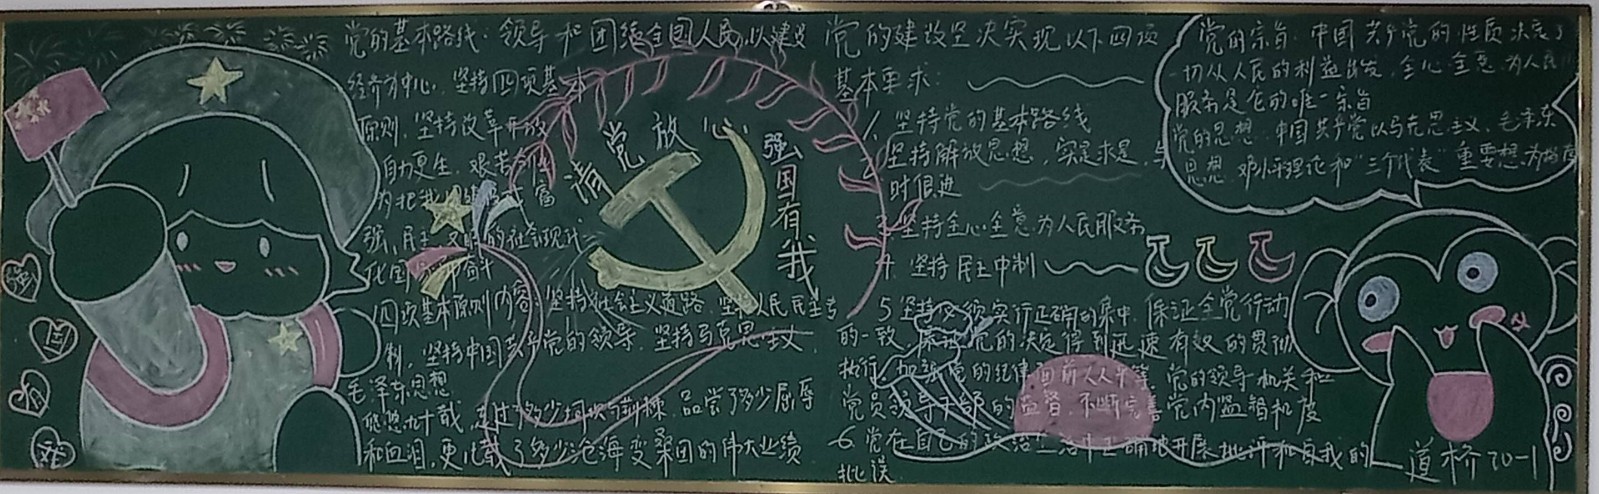 党的基本路线：领导和团结全国人民，以建设
经济为中心，坚持四项基本
原则，坚持改革开放
自力更生，艰苦创业
为把我国建设成富
强，民主，文明的社会现代
化国
四项基本原则内容：坚持社会主义道路，坚持人民民主专
制，坚持中国共产党的领导，坚持马克思主义，
毛泽东思想
悠悠九十载，走过了多少坦坎与荆棘，品尝了多少屈辱
和血泪，更记载了多少沧海变桑田的伟大业绩
请党放心
强国有我
党的建设坚决实现以下四项
基本要求：
1，坚持党的基本路线
2坚持解放思想，实是求是，与
时俱进
3.坚持全心全意为人民服务
4 坚持民主中制
5.坚持必须实行正确的集中，保证全党行动
的一致，保证党的决定得到迅速有效的贯彻
执行，加强党的纪律面前人人平等，党的领导机关和
党员领导干部的监督，不断完善党内监督制度
6.党在自己的政治生活中正确地开展批评和自我的
批误
党的宗旨：中国共产党的性质决定了
一切从人民的利益出发，全心全意为人民
服务是它的唯一宗旨
党的思想：中国共产党以马克思主义，毛泽东
思想，邓小平理论和“三个代表”重要想为指南
强
国
有
我
道桥20-1